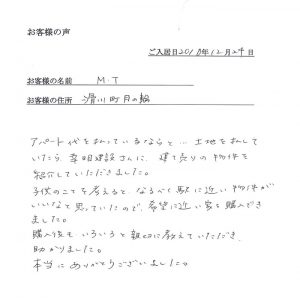 お客様の声
ご入居日2018年12月24日
お客様の名前 M.T
お客様の住所 滑川町月の輪
アパート代を払っているならと…土地を探して
いたら、幸明建設さんに、建て売りの物件を
紹介していただきました。
子供のことを考えると、なるべく駅に近い物件が
いいなと思っていたので、希望に近い家を購入でき
ました。
購入後もいろいろと親切に教えていただき、
助かりました。
本当にありがとうございました。